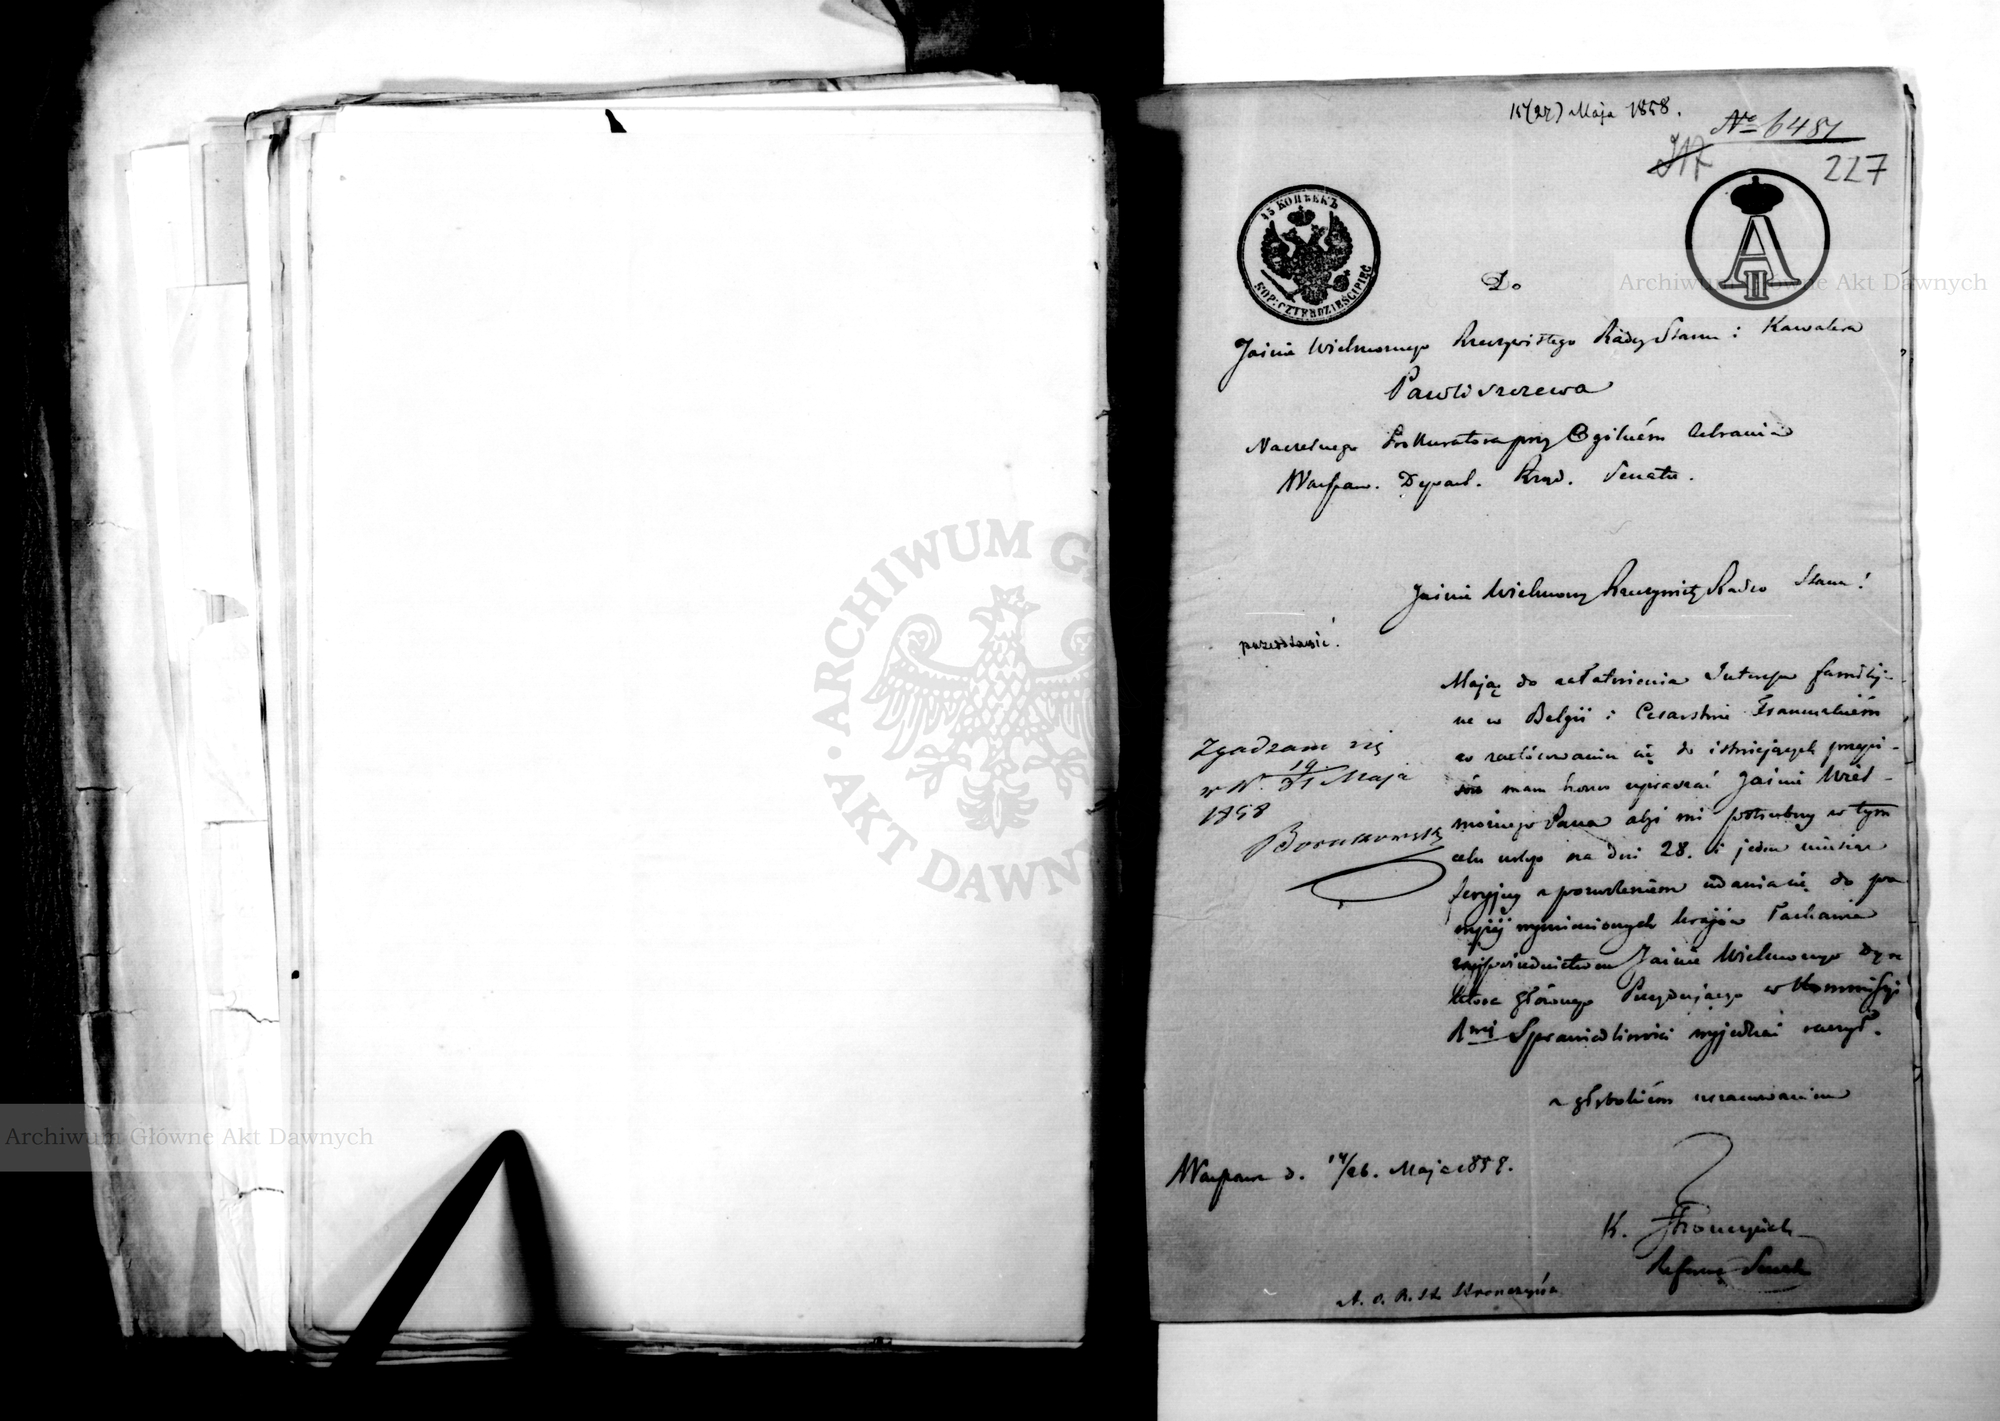 15(27) Maja 1858.
№ 6481
317
227
45 КОПѢЕКЪ
KOP: CZTERDZIEŚCI PIĘĆ
A II
Do
Jaśnie Wielmożnego Rzeczywistego Radcy Stanu i Kawalera
Pawliszczewa
Naczelnego Prokuratora przy Ogólném Zebraniu
Warszaw. Depart. Rząd. Senatu.
Jaśnie Wielmożny Rzeczywisty Radco Stanu!
przedstawić.
Mając do załatwienia Interesa familij-
ne w Belgii i Cesarstwie Francuzkiém
w zastósowaniu się do istniejących przepi-
sów mam honor upraszać Jaśnie Wiel-
możnego Pana abyś mi potrzebny w tym
celu urlop na dni 28. i jeden miesiąc
feryjny z pozwoleniem udania się do po-
wyżéj wymienionych krajów łaskawie
za pośrednictwem Jaśnie Wielmożnego Dyre
ktora głównego Prezydującego w Kommissyi
Rząd Sprawiedliwości wyjednać raczył.
z głębokiém uszanowaniem
Zgadzam się
w W. 19/31 Maja
1858
Warszawa d. 14/26. Maja 1858.
K. Stronczyński
Referent Senatu
N. o. R. St. Stronczyńs.
ARCHIWUM GŁÓWNE AKT DAWNYCH
Archiwum Główne Akt Dawnych
Archiwum Główne Akt Dawnych